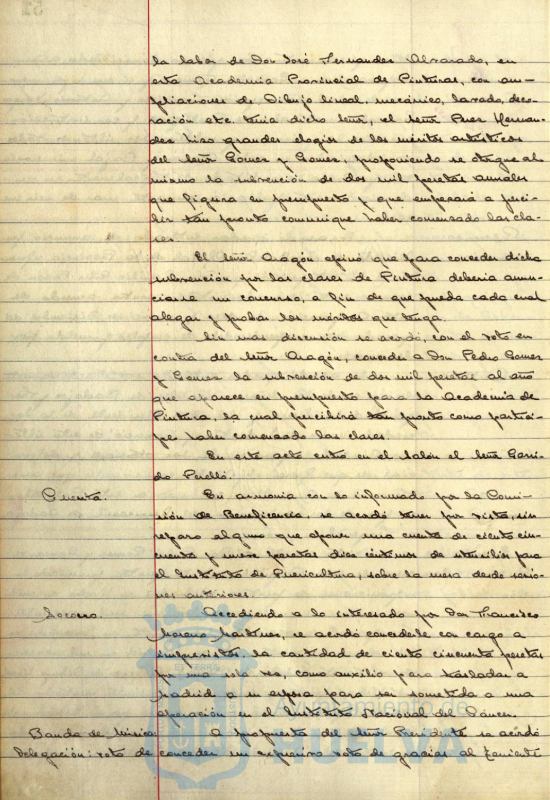 la labor de Don José Fernandez Alvarado, en
esta Academia Provincial de Pinturas, con am-
pliaciones de Dibujo lineal, mecánico, lavado, deco-
ración etc. tenia dicho señor, el señor Perez Hernan-
dez hizo grandes elogios de los méritos artísticos
del señor Gomez y Gomez, proponiendo se otorgue al
mismo la subvención de dos mil pesetas anuales
que figura en presupuesto y que empezará a perci-
bir tan pronto comunique haber comenzado las cla-
ses.
El señor Aragón opinó que para conceder dicha
subvención por las clases de Pintura deberia anun-
ciarse un concurso, a fin de que pueda cada cual
alegar y probar los méritos que tenga.
Sin mas discusión se acordó, con el voto en
contra del señor Aragón, conceder a Don Pedro Gomez
y Gomez la subvención de dos mil pesetas al año
que aparece en presupuesto para la Academia de
Pintura, la cual percibirá tan pronto como partici-
pe haber comenzado las clases.
En este acto entra en el Salón el señor Garri-
do Perelló.
Cuenta. En armonia con lo informado por la Comi-
sión de Beneficencia, se acordó tener por vista, sin
reparo alguno que oponer una cuenta de ciento cin-
cuenta y nueve pesetas diez céntimos de utensilios para
el Instituto de Puericultura, sobre la mesa desde sesio-
nes anteriores.
Socorro. Accediendo a lo interesado por Don Francisco
Moreno Martinez, se acordó concederle con cargo a
imprevistos, la cantidad de ciento cincuenta pesetas
por una sola vez, como auxilio para trasladar a
Madrid a su esposa para ser sometida a una
operación en el Instituto Nacional del Cáncer.
Banda de Música: A propuesta del señor Presidente se acordó
Delegación: voto de conceder un expresivo voto de gracias al Teniente
Ayuntamiento de
HUELVA